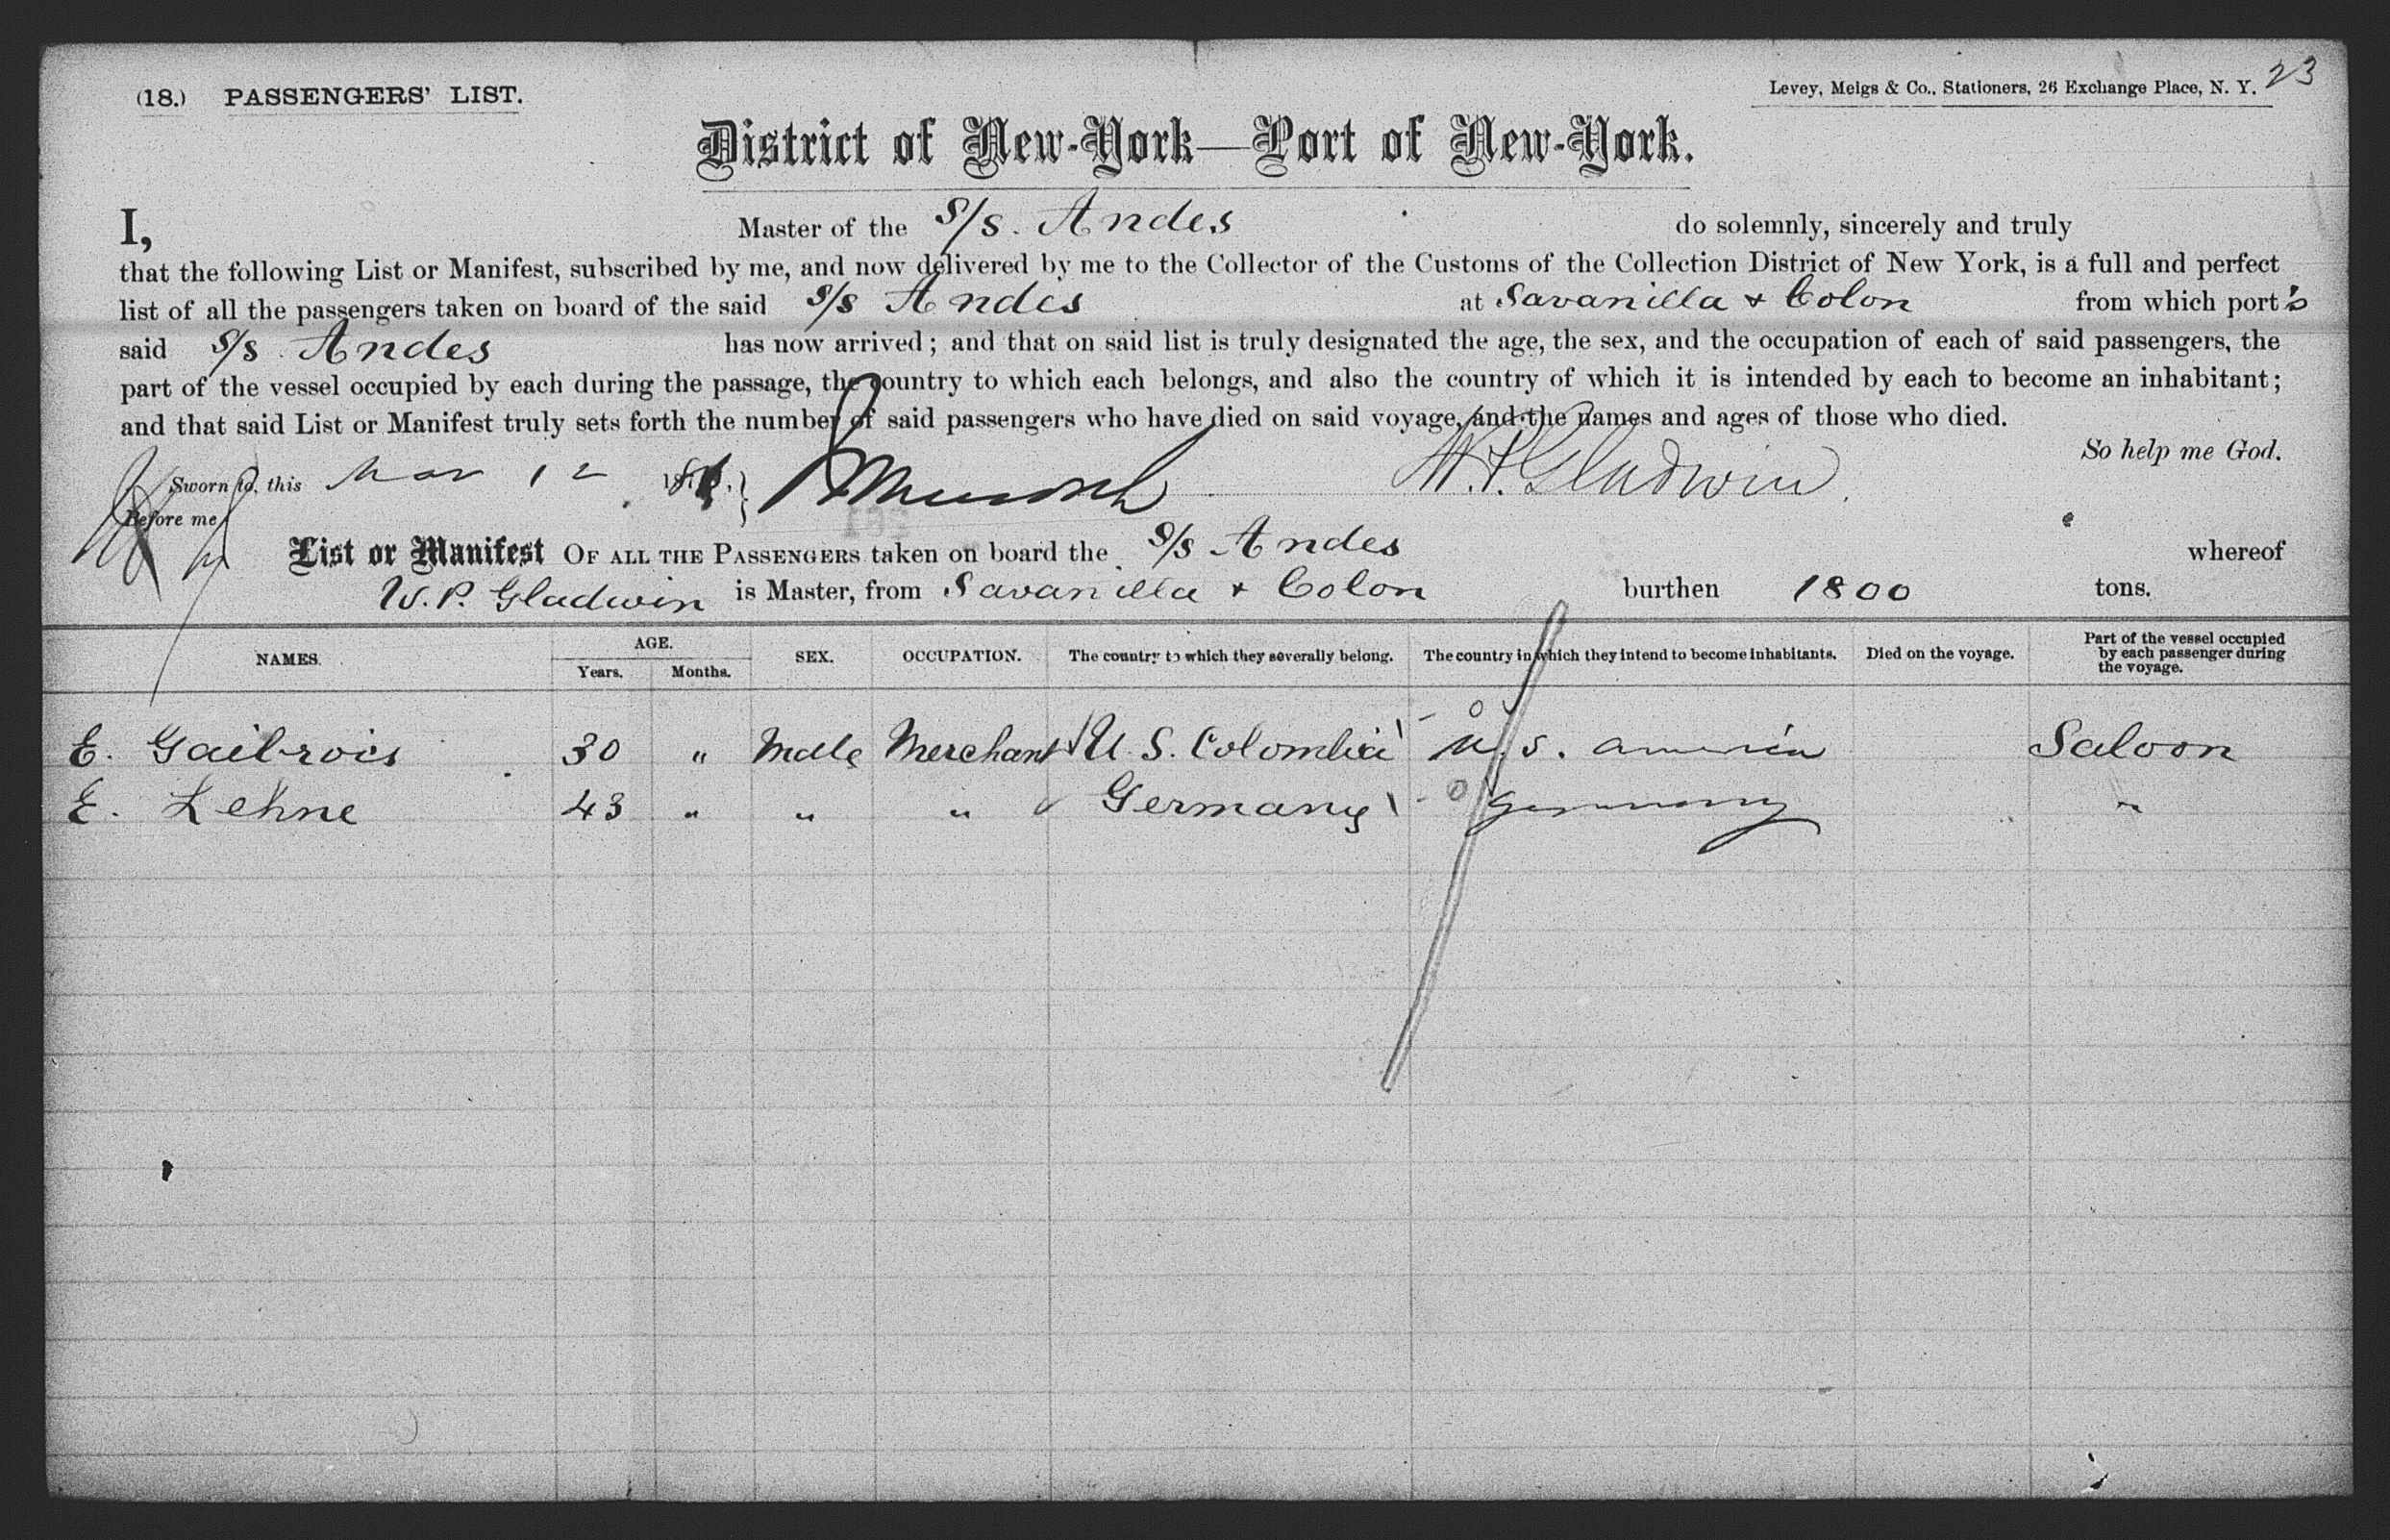 (18.) PASSENGERS' LIST.
Levey, Meigs & Co., Stationers, 26 Exchange Place, N. Y. 23
District of New-York—Port of New-York.
I, Master of the S/s. Andes do solemnly, sincerely and truly
that the following List or Manifest, subscribed by me, and now delivered by me to the Collector of the Customs of the Collection District of New York, is a full and perfect
list of all the passengers taken on board of the said S/s Andes at Savanilla & Colon from which port's
said S/s Andes has now arrived; and that on said list is truly designated the age, the sex, and the occupation of each of said passengers, the
part of the vessel occupied by each during the passage, the country to which each belongs, and also the country of which it is intended by each to become an inhabitant;
and that said List or Manifest truly sets forth the number of said passengers who have died on said voyage, and the names and ages of those who died.
So help me God.
Sworn to, this Mar 12 W. P. Gladwin
Before me
List or Manifest OF ALL THE PASSENGERS taken on board the S/s Andes whereof
W. P. Gladwin is Master, from Savanilla & Colon burthen 1800 tons.
NAMES. AGE. Years. Months. SEX. OCCUPATION. The country to which they severally belong. The country in which they intend to become inhabitants. Died on the voyage. Part of the vessel occupied by each passenger during the voyage.
E. Gaibrois 30 " Male Merchant U. S. Colombia U. S. America Saloon
E. Lehne 43 " " " Germany Germany "